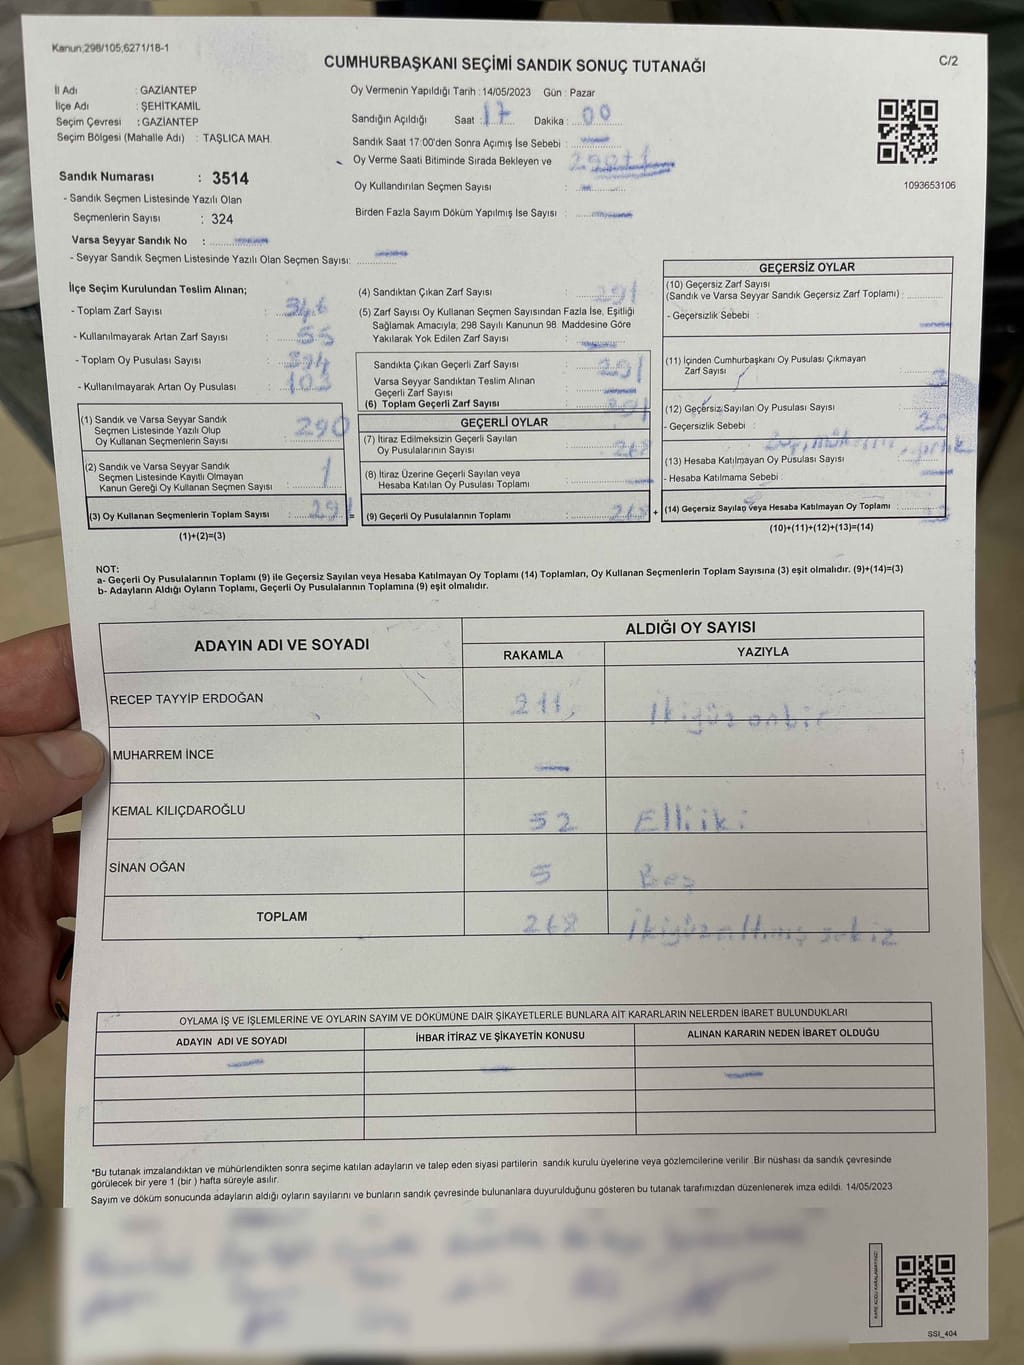 Kanun;298/105;6271/18-1
C/2
CUMHURBAŞKANI SEÇİMİ SANDIK SONUÇ TUTANAĞI
İl Adı : GAZİANTEP
İlçe Adı : ŞEHİTKAMİL
Seçim Çevresi : GAZİANTEP
Seçim Bölgesi (Mahalle Adı) : TAŞLICA MAH.
Sandık Numarası : 3514
- Sandık Seçmen Listesinde Yazılı Olan
Seçmenlerin Sayısı : 324
Varsa Seyyar Sandık No :
- Seyyar Sandık Seçmen Listesinde Yazılı Olan Seçmen Sayısı:
Oy Vermenin Yapıldığı Tarih : 14/05/2023 Gün : Pazar
Sandığın Açıldığı Saat : 17 Dakika : 00
Sandık Saat 17:00'den Sonra Açımış İse Sebebi :
Oy Verme Saati Bitiminde Sırada Bekleyen ve
Oy Kullandırılan Seçmen Sayısı :
Birden Fazla Sayım Döküm Yapılmış İse Sayısı :
1093653106
İlçe Seçim Kurulundan Teslim Alınan;
- Toplam Zarf Sayısı : 346
- Kullanılmayarak Artan Zarf Sayısı : 55
- Toplam Oy Pusulası Sayısı : 394
- Kullanılmayarak Artan Oy Pusulası : 103
(1) Sandık ve Varsa Seyyar Sandık
Seçmen Listesinde Yazılı Olup
Oy Kullanan Seçmenlerin Sayısı 290
(2) Sandık ve Varsa Seyyar Sandık
Seçmen Listesinde Kayıtlı Olmayan
Kanun Gereği Oy Kullanan Seçmen Sayısı : 1
(3) Oy Kullanan Seçmenlerin Toplam Sayısı : 291 =
(1)+(2)=(3)
(4) Sandıktan Çıkan Zarf Sayısı : 291
(5) Zarf Sayısı Oy Kullanan Seçmen Sayısından Fazla İse, Eşitliği
Sağlamak Amacıyla; 298 Sayılı Kanunun 98. Maddesine Göre
Yakılarak Yok Edilen Zarf Sayısı :
Sandıkta Çıkan Geçerli Zarf Sayısı : 291
Varsa Seyyar Sandıktan Teslim Alınan
Geçerli Zarf Sayısı :
(6) Toplam Geçerli Zarf Sayısı : 291
GEÇERLİ OYLAR
(7) İtiraz Edilmeksizin Geçerli Sayılan
Oy Pusulalarının Sayısı : 268
(8) İtiraz Üzerine Geçerli Sayılan veya
Hesaba Katılan Oy Pusulası Toplamı :
(9) Geçerli Oy Pusulalarının Toplamı : 268 +
GEÇERSİZ OYLAR
(10) Geçersiz Zarf Sayısı
(Sandık ve Varsa Seyyar Sandık Geçersiz Zarf Toplamı) :
- Geçersizlik Sebebi :
(11) İçinden Cumhurbaşkanı Oy Pusulası Çıkmayan
Zarf Sayısı : 3
(12) Geçersiz Sayılan Oy Pusulası Sayısı : 20
- Geçersizlik Sebebi :
(13) Hesaba Katılmayan Oy Pusulası Sayısı :
- Hesaba Katılmama Sebebi :
(14) Geçersiz Sayılan veya Hesaba Katılmayan Oy Toplamı :
(10)+(11)+(12)+(13)=(14)
NOT:
a- Geçerli Oy Pusulalarının Toplamı (9) ile Geçersiz Sayılan veya Hesaba Katılmayan Oy Toplamı (14) Toplamları, Oy Kullanan Seçmenlerin Toplam Sayısına (3) eşit olmalıdır. (9)+(14)=(3)
b- Adayların Aldığı Oyların Toplamı, Geçerli Oy Pusulalarının Toplamına (9) eşit olmalıdır.
ADAYIN ADI VE SOYADI
ALDIĞI OY SAYISI
RAKAMLA YAZIYLA
RECEP TAYYİP ERDOĞAN 211 İkiyüz onbir
MUHARREM İNCE
KEMAL KILIÇDAROĞLU 52 Elliiki
SİNAN OĞAN 5 Beş
TOPLAM 268 İkiyüzaltmış sekiz
OYLAMA İŞ VE İŞLEMLERİNE VE OYLARIN SAYIM VE DÖKÜMÜNE DAİR ŞİKAYETLERLE BUNLARA AİT KARARLARIN NELERDEN İBARET BULUNDUKLARI
ADAYIN ADI VE SOYADI İHBAR İTİRAZ VE ŞİKAYETİN KONUSU ALINAN KARARIN NEDEN İBARET OLDUĞU
*Bu tutanak imzalandıktan ve mühürlendikten sonra seçime katılan adayların ve talep eden siyasi partilerin sandık kurulu üyelerine veya gözlemcilerine verilir .Bir nüshası da sandık çevresinde
görülecek bir yere 1 (bir ) hafta süreyle asılır.
Sayım ve döküm sonucunda adayların aldığı oyların sayılarını ve bunların sandık çevresinde bulunanlara duyurulduğunu gösteren bu tutanak tarafımızdan düzenlenerek imza edildi. 14/05/2023
KARE KODU KARALAMAYINIZ!
SSI_404